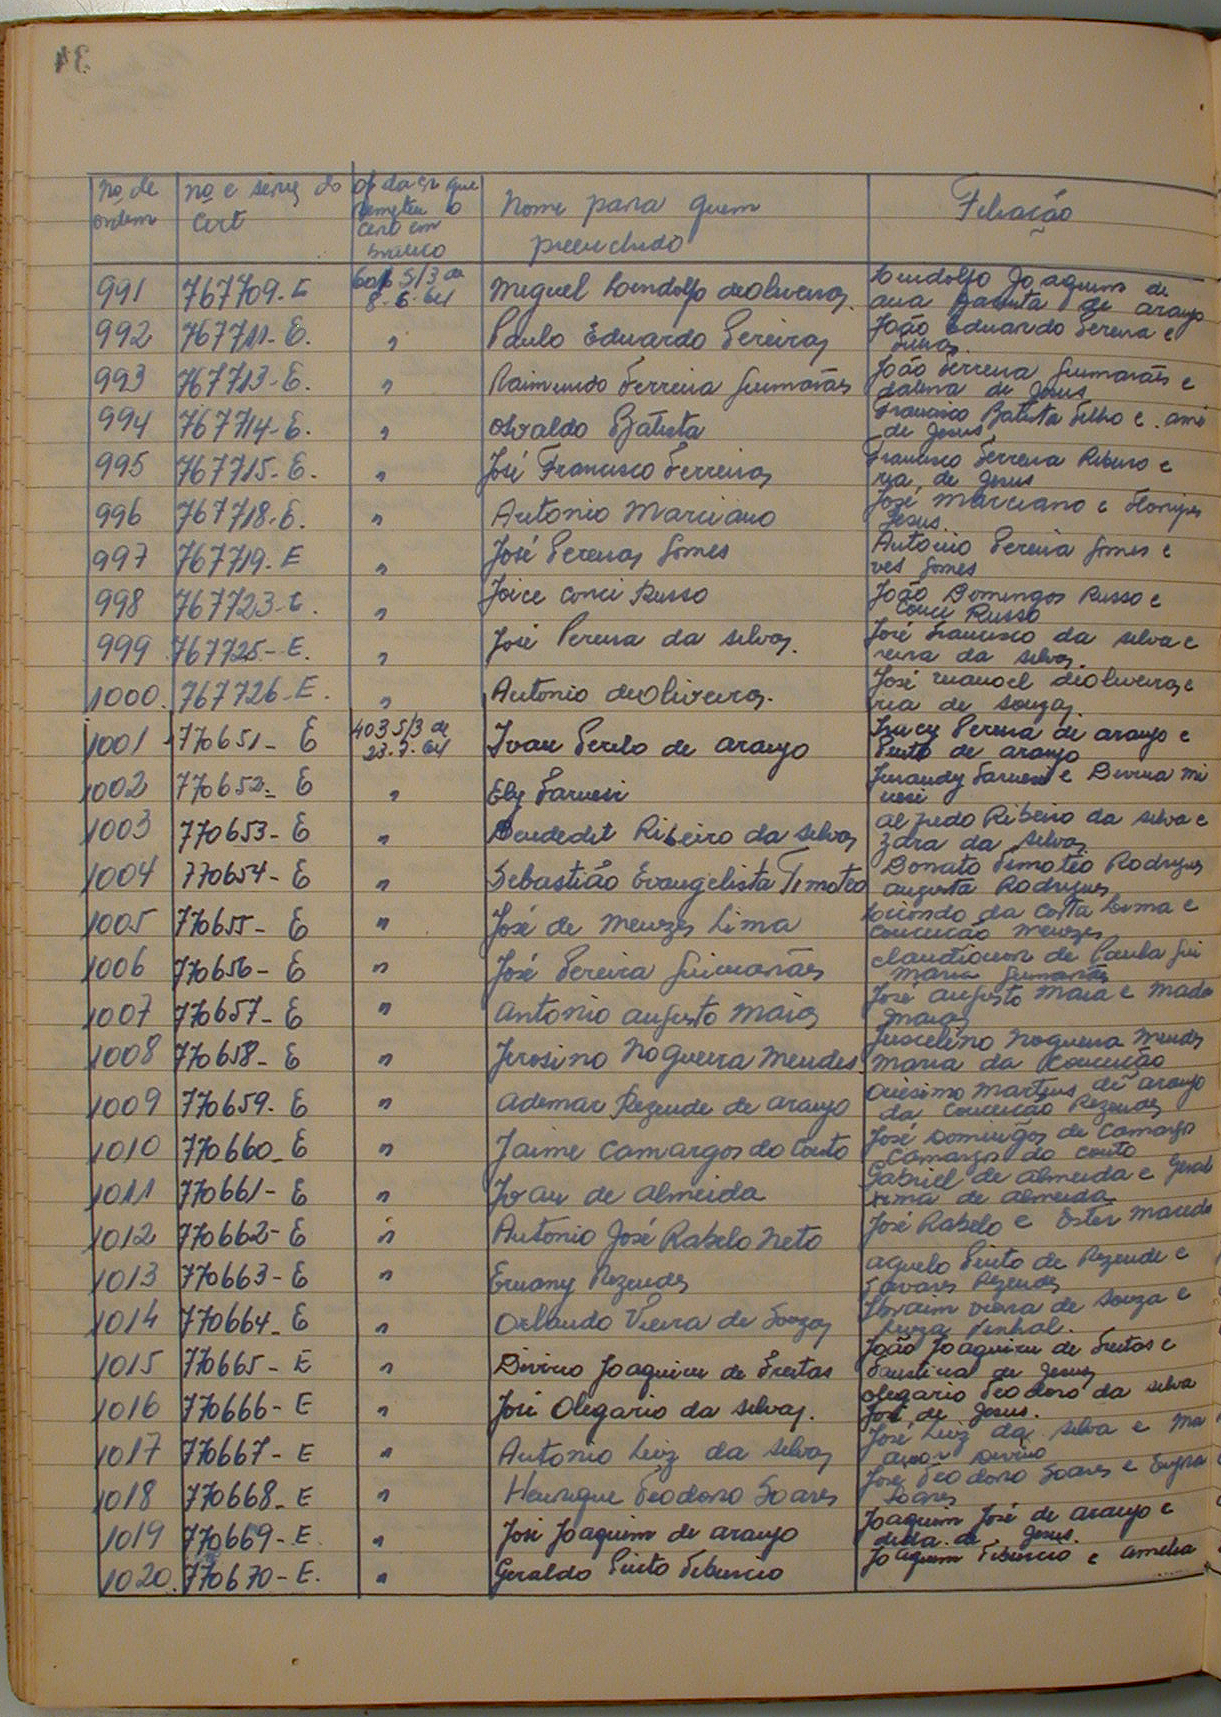 34
nº de ordem | nº e série do cert | of da cr que remeteu o cert em branco | Nome para quem preenchido | Filiação
991 | 767709-E | 5/3 de 8-6-64 | Miguel Lindolfo de Oliveira | Lindolfo Joaquim de
ana Batista de araujo
992 | 767711-E. | " | Paulo Eduardo Pereira | João Eduardo Pereira e
993 | 767713-E. | " | Raimundo Ferreira Guimarães | João Ferreira Guimarães e
dalena de Jesus
994 | 767714-E. | " | Osvaldo Batista | Francisco Batista Filho e
de Jesus
995 | 767715-E. | " | José Francisco Ferreira | Francisco Ferreira Ribeiro e
ria de Jesus
996 | 767718-E. | " | Antonio Marciano | José Marciano e
Jesus.
997 | 767719-E | " | José Pereira Gomes | Antonio Pereira Gomes e
ves Gomes
998 | 767723-E. | " | Joice Conci Russo | João Domingos Russo e
Conci Russo
999 | 767725-E. | " | José Pereira da Silva. | José Francisco da Silva e
reira da Silva.
1000. | 767726-E. | " | Antonio de Oliveira. | José Manoel de Oliveira e
ria de Souza
1001 | 770651-E | 403 5/3 de 23.7.64 | Ivan Perilo de araujo | Pereira de araujo e
de araujo
1002 | 770652-E | " | Ely Farnesi | Jurandy Farnesi e Divina
nesi
1003 | 770653-E | " | Benededit Ribeiro da Silva | alfredo Ribeiro da Silva e
da Silva
1004 | 770654-E | " | Sebastião Evangelista Timoteo | Donato Timoteo Rodrigues
augusta Rodrigues
1005 | 770655-E | " | José de Menezes Lima | da Costa Lima e
Conceição Menezes
1006 | 770656-E | " | José Pereira Guimarães | de Paula Gui
Maria Guimarães
1007 | 770657-E | " | Antonio augusto Maia | José augusto Maia e Mada
Maia
1008 | 770658-E | " | Jerosino Nogueira Mendes | Juscelino Nogueira Mendes
Maria da Conceição
1009 | 770659-E | " | Ademar Rezende de araujo | Onésimo Martins de araujo
da Conceição Rezende
1010 | 770660-E | " | Jaime Camargos do Couto | José Domingos de Camargos
Camargos do Couto
1011 | 770661-E | " | Ivan de Almeida | Gabriel de Almeida e Geral
de Almeida
1012 | 770662-E | " | Antonio José Rabelo Neto | José Rabelo e Ester Macedo
1013 | 770663-E | " | Ernany Rezende | Pinto de Rezende e
Tavares Rezende
1014 | 770664-E | " | Orlando Vieira de Souza | Vieira de Souza e
Pinhal.
1015 | 770665-E | " | Divino Joaquim de Freitas | João Joaquim de Freitas e
Faustina de Jesus
1016 | 770666-E | " | José Olegario da Silva. | Olegario Teodoro da Silva
José de Jesus.
1017 | 770667-E | " | Antonio Luiz da Silva | José Luiz da Silva e Ma
Divino
1018 | 770668-E | " | Henrique Teodoro Soares | José Teodoro Soares e
Soares
1019 | 770669-E | " | José Joaquim de araujo | Joaquim José de araujo e
de Jesus.
1020. | 770670-E. | " | Geraldo Pinto Tiburcio | Joaquim Tiburcio e Amelia